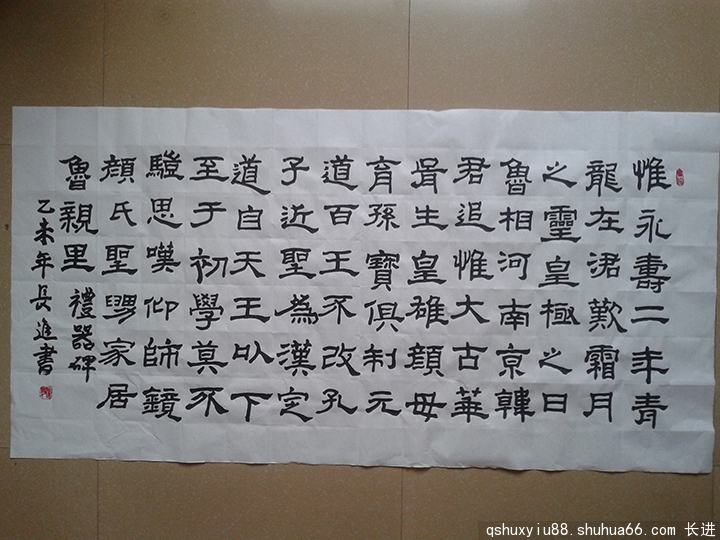 惟永壽二年青
龍在涒歎霜月
之靈皇極之日
魯相河南京韓
君追惟大古華
胥生皇雄顏母
育孫寶俱制元
道百王不改孔
子近聖為漢定
道自天王以下
至于初學莫不
思嘆仰師鏡
顏氏聖舅家居
魯親里 禮器碑
乙未年長進書
qshuxyiu88.shuhua66.com 长进